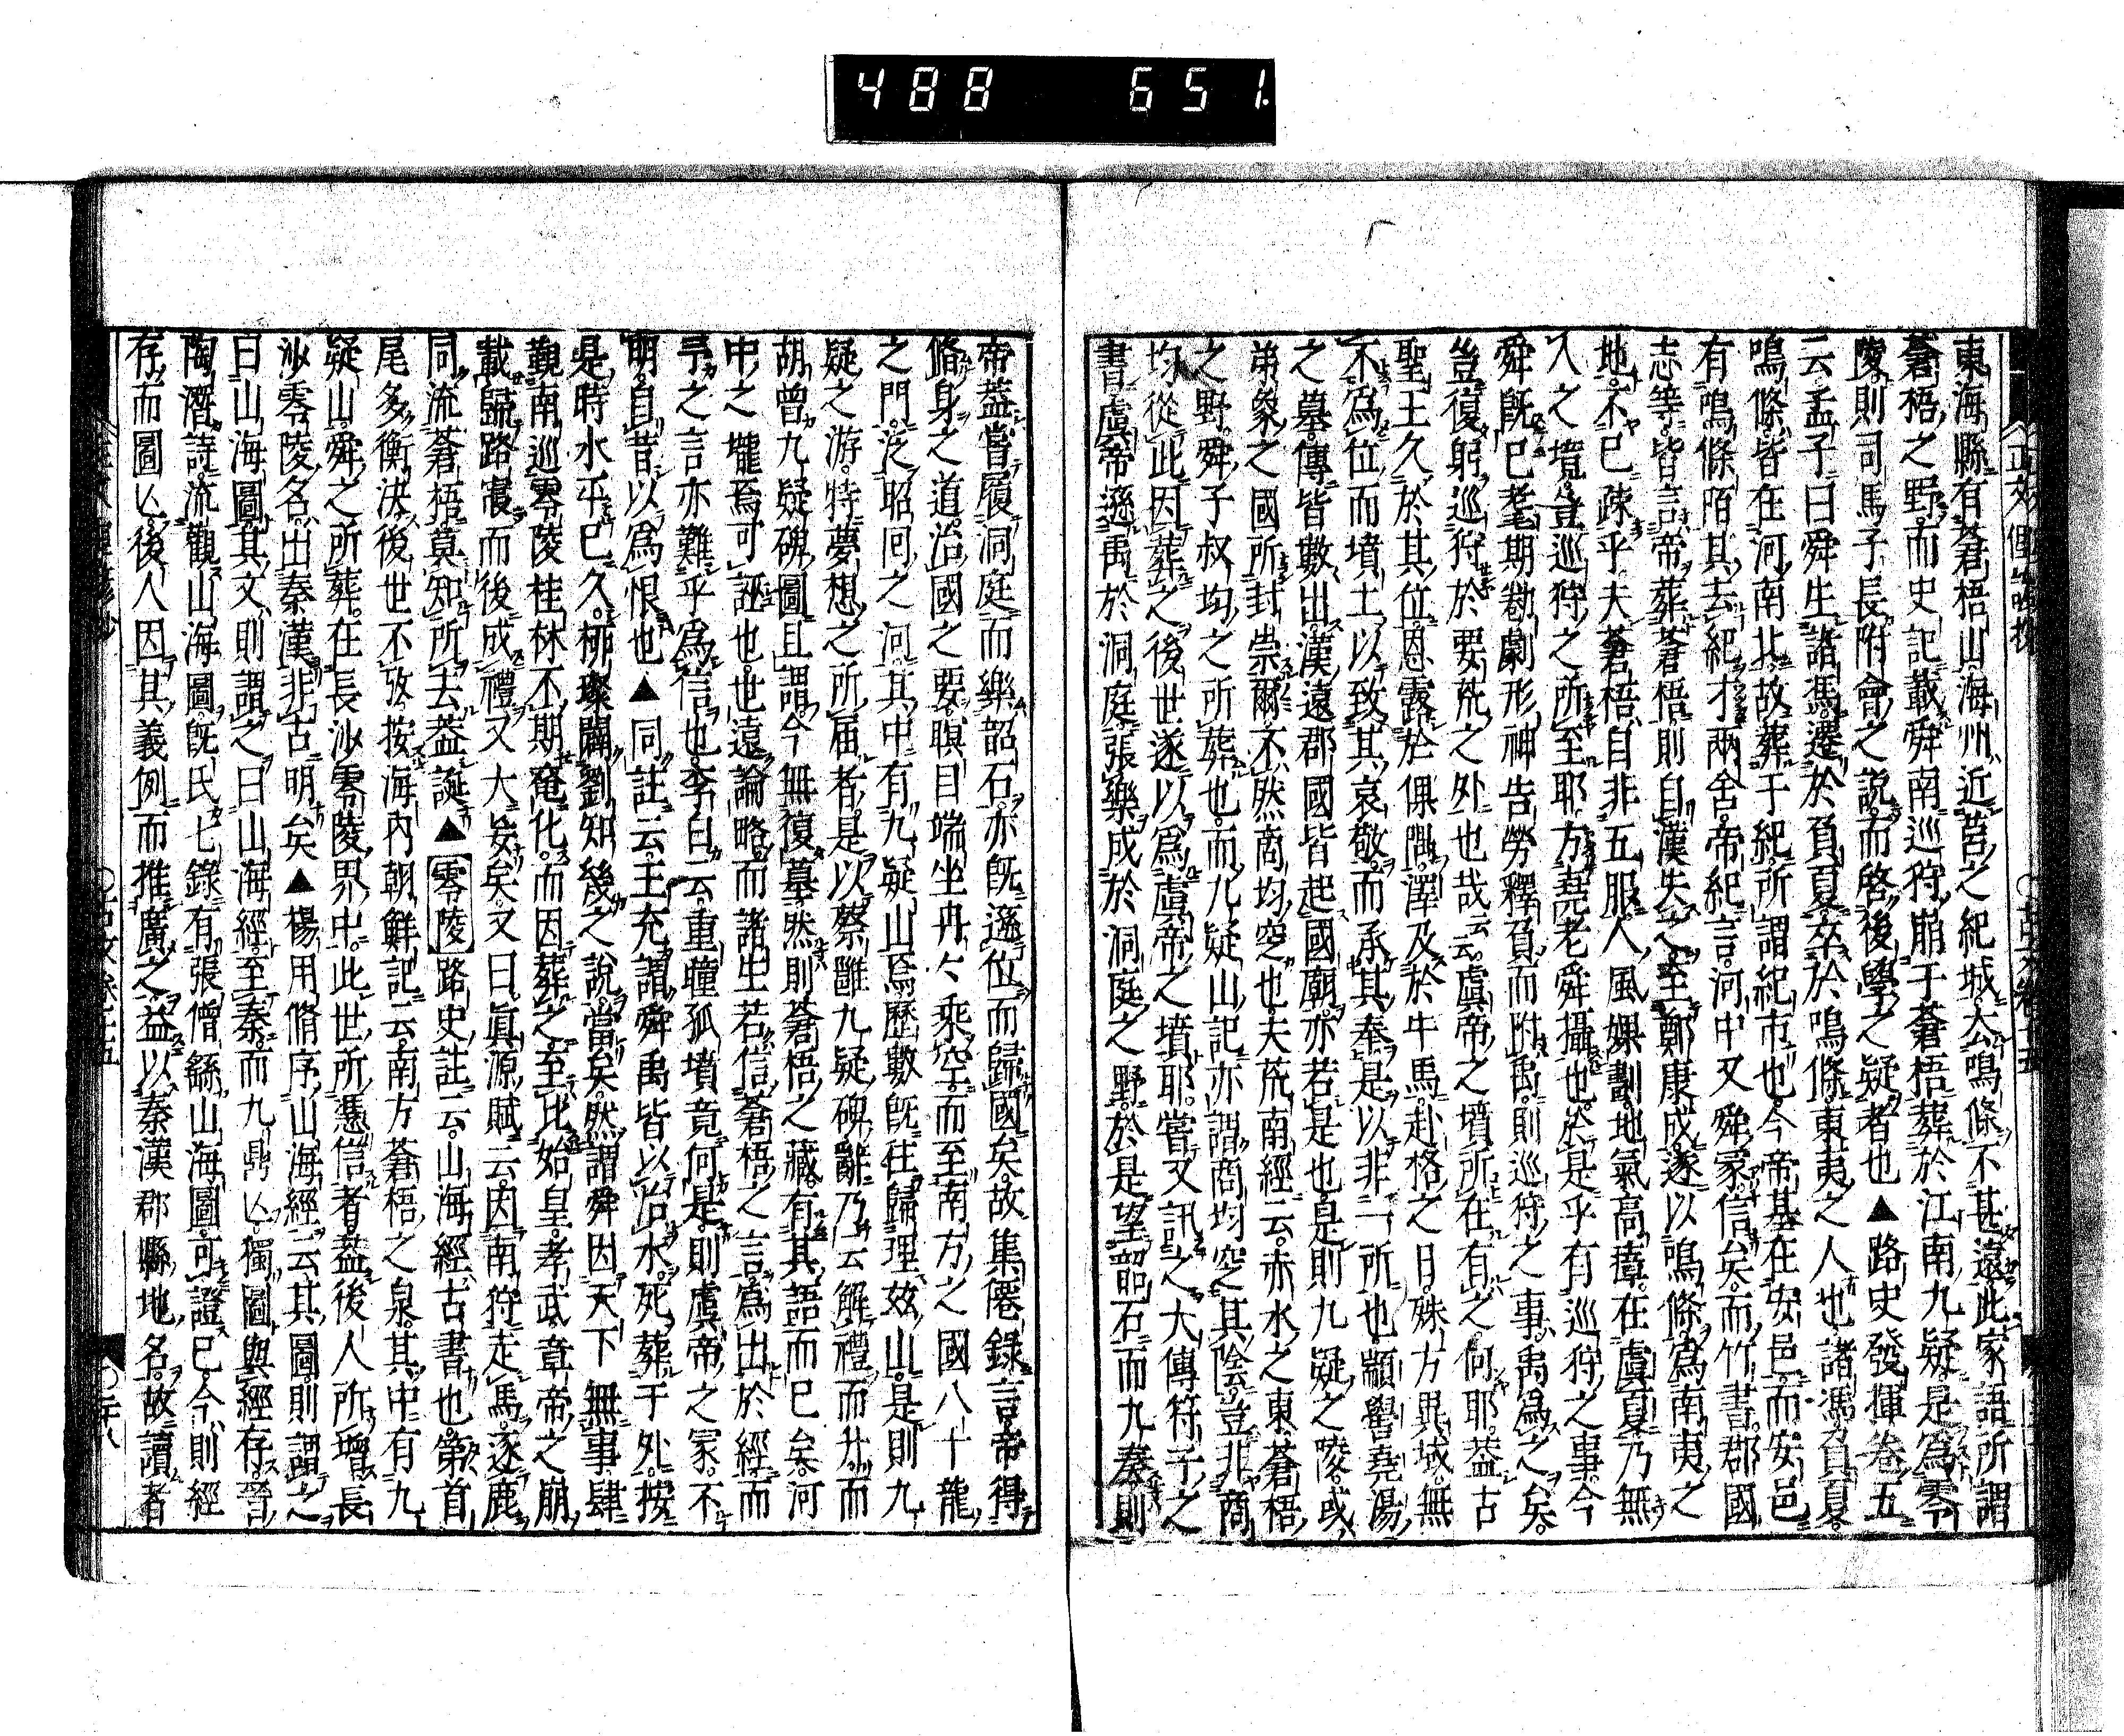 488 651.
東海縣有蒼梧山海州近莒之紀城去鳴條不甚遠此家語所謂
蒼梧之野而史記載舜南巡狩崩于蒼梧葬於江南九疑是爲零
陵則司馬子長附會之說而啓後學之疑者也▲路史發揮卷五
云孟子曰舜生諸馮遷於負夏卒於鳴條東夷之人也諸馮負夏
鳴條皆在河南北故葬于紀所謂紀市也今帝墓在安邑而安邑
有鳴條陌其去紀才兩舍帝紀言河中又舜冢信矣而竹書郡國
志等皆言帝葬蒼梧則自漢失之至鄭康成遂以鳴條爲南夷之
地不已疎乎夫蒼梧自非五服人風婐劃地氣高瘴在虞夏乃無
人之境豈巡狩之所至耶方堯老舜攝也於是乎有巡狩之事今
舜既已耄期勌劇形神告勞釋負而附禹則巡狩之事禹爲之矣
豈復躬巡狩於要荒之外也哉云云虞帝之墳所在有之何耶蓋古
聖王久於其位恩露於倮隅澤及於牛馬赴格之日殊方異域無
不爲位而墳土以致其哀敬而承其奉是以非一所也顓嚳堯湯
之墓傳皆數出漢遠郡國皆起國廟亦若是也是則九疑之陵或
弟象之國所封崇爾不然商均空也大荒南經云赤水之東蒼梧
之野舜子叔均之所葬也而九疑山記亦謂商均窆其陰豈非商
均從此因葬之後世遂以爲虞帝之墳耶嘗又訊之大傳符子之
書虞帝遜禹於洞庭張樂成於洞庭之野於是望韶石而九奏則
帝蓋嘗履洞庭而樂韶石亦既遜位而歸國矣故集僊錄言帝得
脩身之道治國之要瞑目端坐冉々乘空而至南方之國八十龍
之門泛昭回之河其中有九疑山焉歷數既往歸理茲山是則九
疑之游特夢想之所届者是以蔡雝九疑碑辭乃云解禮而升而
胡曾九疑碑圖且謂今無復墓然則蒼梧之藏有其語而已矣河
中之壠焉可誣也世遠論略而諸生若信蒼梧之言爲出於經而
予之言亦難乎爲信也李白云重瞳孤墳竟何是則虞帝之冢不
明自昔以爲恨也▲同註云王充謂舜禹皆以治水死葬于外按
是時水平已久柳璨闢劉知幾之說當矣然謂舜因天下無事肆
覲南巡零陵桂林不期奄化而因葬之至比始皇孝武章帝之崩
載歸路寢而後成禮又大妄矣又曰眞源賦云因南狩走馬逐鹿
同流蒼梧莫知所去蓋誕▲零陵路史註云山海經古書也第首
尾多衡決後世不攷按海内朝鮮記云南方蒼梧之泉其中有九
疑山舜之所葬在長沙零陵界中此世所憑信者蓋後人所增長
沙零陵名出秦漢非古明矣▲楊用脩序山海經云其圖則謂之
曰山海圖其文則謂之曰山海經至秦而九鼎亾獨圖與經存晉
陶潛詩流觀山海圖既氏七錄有張僧繇山海圖可證已今則經
存而圖亾後人因其義例而推廣之益以秦漢郡縣地名故讀者